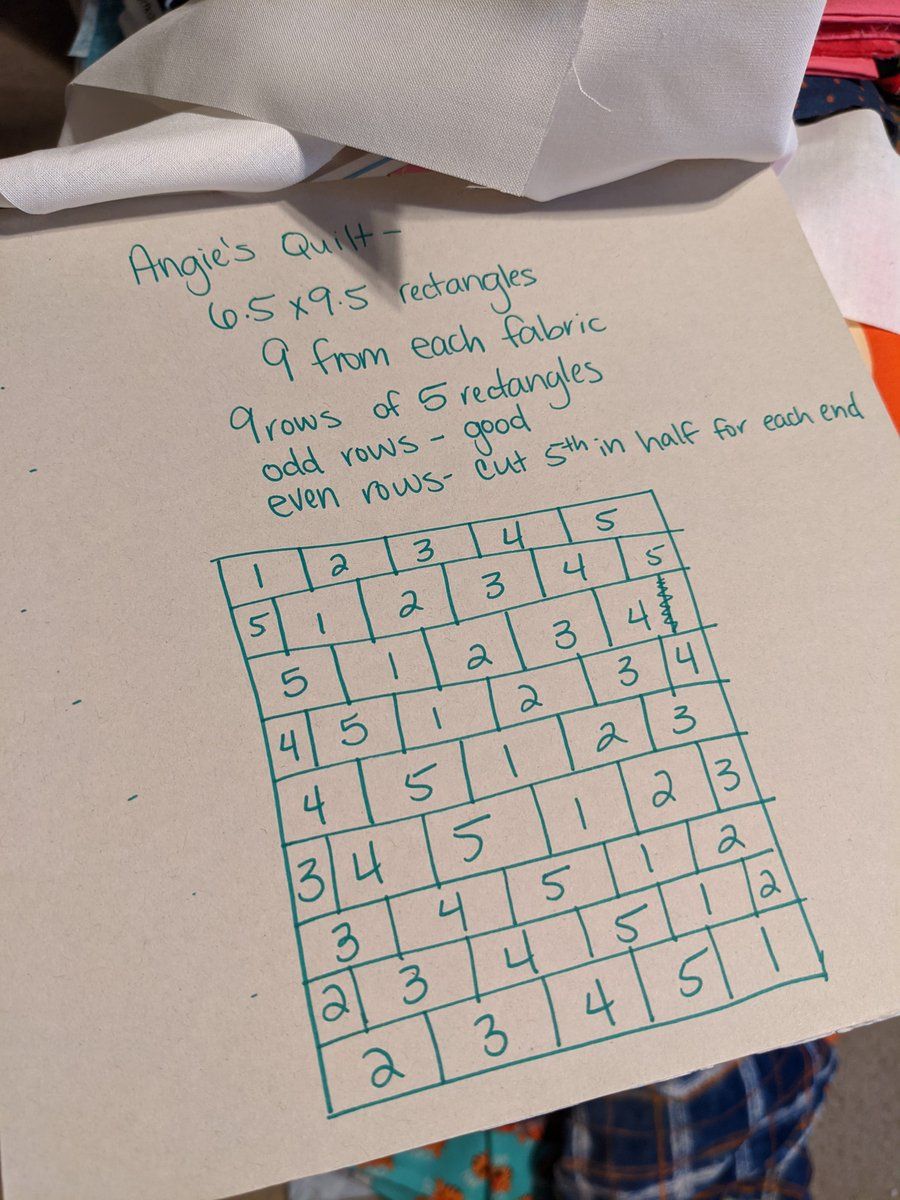 Angie's Quilt -
6.5 x 9.5 rectangles
9 from each fabric
9 rows of 5 rectangles
odd rows - good
even rows - cut 5th in half for each end
1 2 3 4 5
5 1 2 3 4 5
5 1 2 3 4
4 5 1 2 3 4
4 5 1 2 3
3 4 5 1 2 3
3 4 5 1 2
2 3 4 5 1 2
2 3 4 5 1